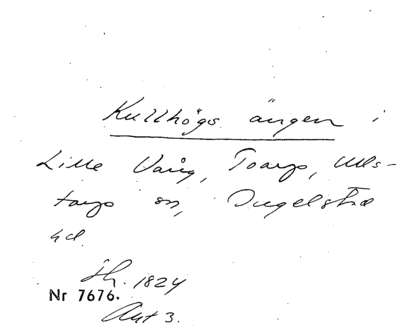 Kullhögs ängen i
Lille Vång, Toarp, Ulls-
tarps sn, Ingelstad
hd.
Sk. 1824
Nr 7676.
Akt 3.